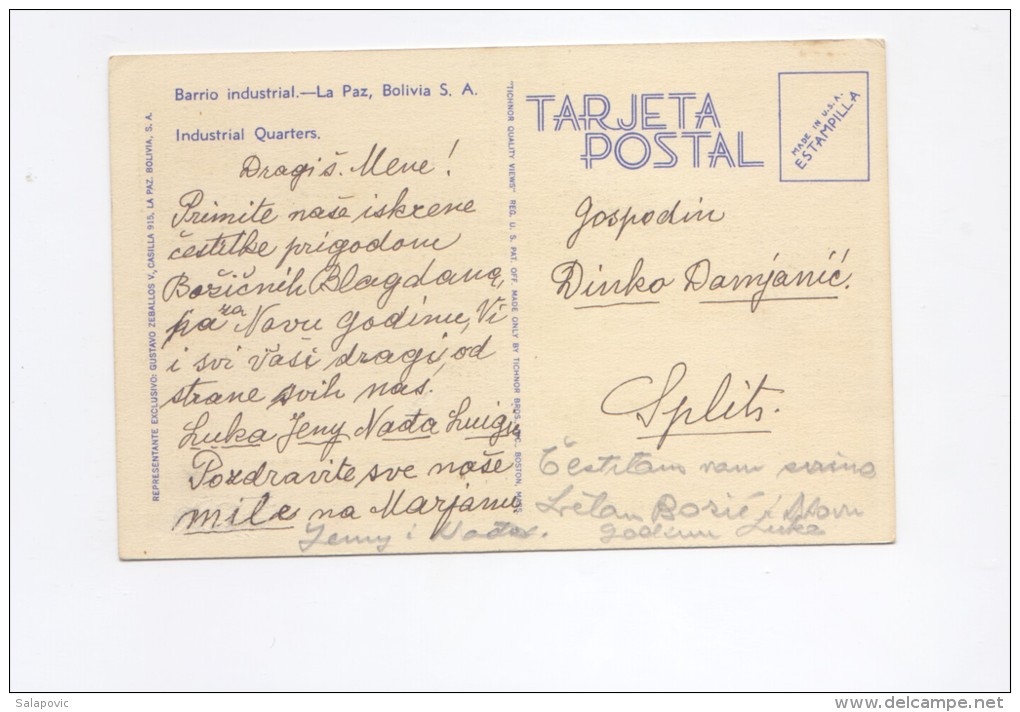 Barrio industrial.—La Paz, Bolivia S. A.
Industrial Quarters.
Dragi š. Mene!
Primite naše iskrene
čestitke prigodom
Božičnih Blagdana,
pa za Novu godinu, Vi
i svi Vaši dragi, od
strane svih nas.
Luka Jeny Nada Luigu
Pozdravite sve naše
mile na Marjanu
Jenny i Nada.
REPRESENTANTE EXCLUSIVO: GUSTAVO ZEBALLOS V., CASILLA 915, LA PAZ. BOLIVIA, S. A.
"TICHNOR QUALITY VIEWS" REG. U. S. PAT. OFF. MADE ONLY BY TICHNOR BROS., INC., BOSTON, MASS.
TARJETA
POSTAL
MADE IN U.S.A.
ESTAMPILLA
Gospodin
Dinko Damjanić.
Split.
Čestitam vam svima
Sretan Božić i Novu
godinu Luka
Salapovic
delcampe.net